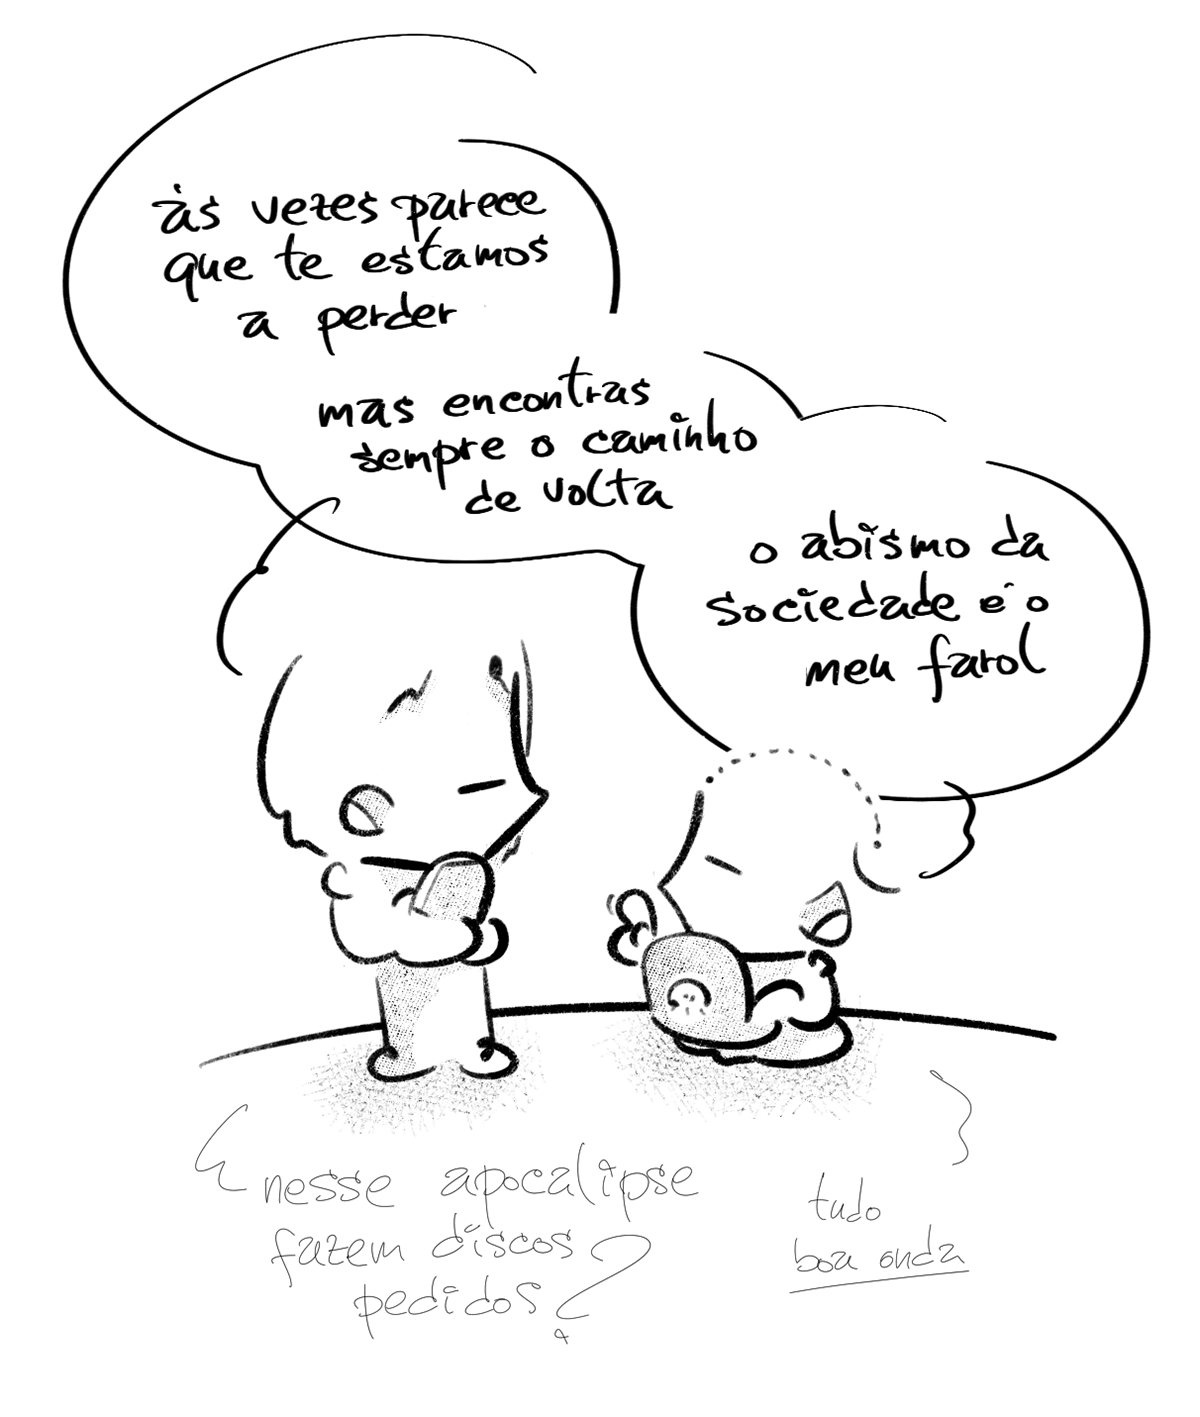 às vezes parece
que te estamos
a perder
mas encontras
sempre o caminho
de volta
o abismo da
sociedade é o
meu farol
nesse apocalipse
fazem discos
pedidos?
tudo
boa onda